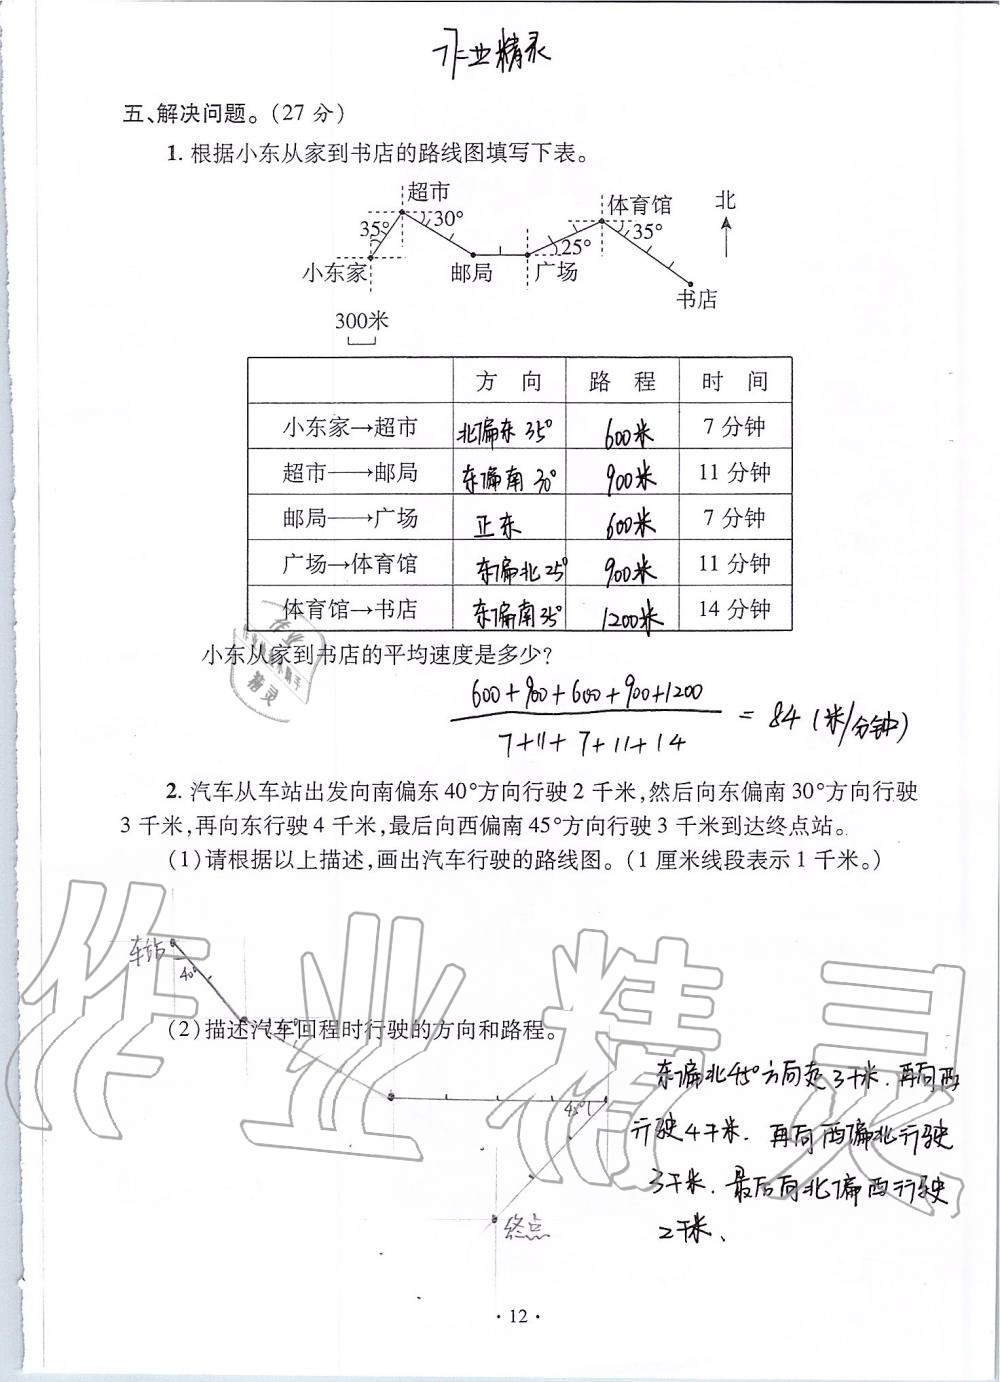 作业精灵
五、解决问题。(27 分)
1. 根据小东从家到书店的路线图填写下表。
超市
体育馆
北
30°
35°
35°
25°
小东家
邮局
广场
书店
300米
方 向 路 程 时 间
小东家→超市 北偏东35° 600米 7 分钟
超市→邮局 东偏南30° 900米 11 分钟
邮局→广场 正东 600米 7 分钟
广场→体育馆 东偏北25° 900米 11 分钟
体育馆→书店 东偏南35° 1200米 14 分钟
小东从家到书店的平均速度是多少?
600+900+600+900+1200
7+11+7+11+14
=84(米/分钟)
2. 汽车从车站出发向南偏东40°方向行驶2 千米,然后向东偏南30°方向行驶
3 千米,再向东行驶4 千米,最后向西偏南45°方向行驶3 千米到达终点站。
(1)请根据以上描述,画出汽车行驶的路线图。(1 厘米线段表示1 千米。)
车站
40°
(2)描述汽车回程时行驶的方向和路程。
45°
终点
东偏北45°方向走3千米.再向西
行驶4千米.再向西偏北行驶
3千米.最后向北偏西行驶
2千米、
作业精灵
·12·